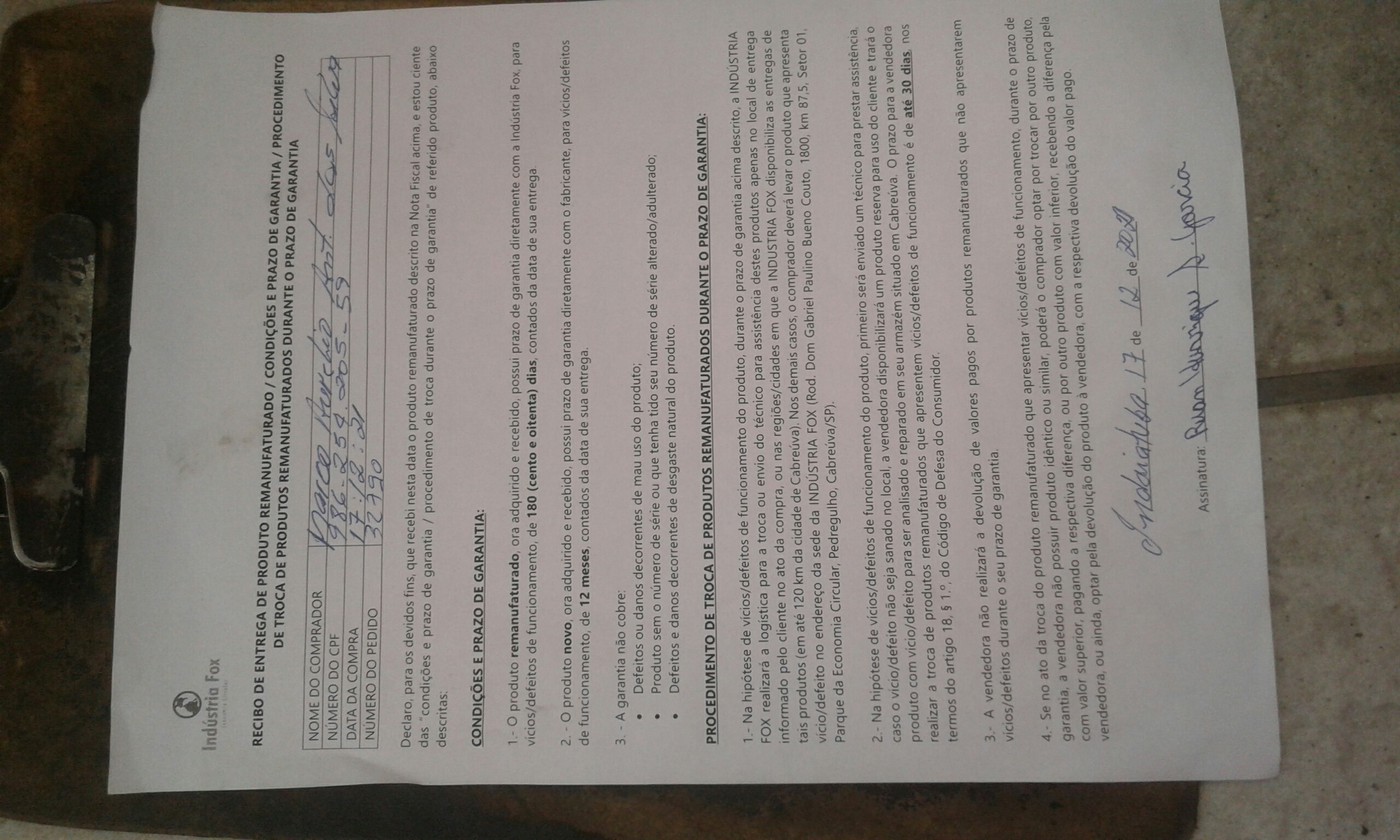 Indústria Fox
RECIBO DE ENTREGA DE PRODUTO REMANUFATURADO / CONDIÇÕES E PRAZO DE GARANTIA / PROCEDIMENTO
DE TROCA DE PRODUTOS REMANUFATURADOS DURANTE O PRAZO DE GARANTIA
NOME DO COMPRADOR Marco dos
NÚMERO DO CPF 986-254-205-59
DATA DA COMPRA 17:12:21
NÚMERO DO PEDIDO 32790
Declaro, para os devidos fins, que recebi nesta data o produto remanufaturado descrito na Nota Fiscal acima, e estou ciente
das "condições e prazo de garantia / procedimento de troca durante o prazo de garantia" de referido produto, abaixo
descritas:
CONDIÇÕES E PRAZO DE GARANTIA:
1.- O produto remanufaturado, ora adquirido e recebido, possui prazo de garantia diretamente com a Indústria Fox, para
vícios/defeitos de funcionamento, de 180 (cento e oitenta) dias, contados da data de sua entrega.
2. - O produto novo, ora adquirido e recebido, possui prazo de garantia diretamente com o fabricante, para vícios/defeitos
de funcionamento, de 12 meses, contados da data de sua entrega.
3. - A garantia não cobre:
• Defeitos ou danos decorrentes de mau uso do produto;
• Produto sem o número de série ou que tenha tido seu número de série alterado/adulterado;
• Defeitos e danos decorrentes de desgaste natural do produto.
PROCEDIMENTO DE TROCA DE PRODUTOS REMANUFATURADOS DURANTE O PRAZO DE GARANTIA:
1.- Na hipótese de vícios/defeitos de funcionamento do produto, durante o prazo de garantia acima descrito, a INDÚSTRIA
FOX realizará a logística para a troca ou envio do técnico para assistência destes produtos apenas no local de entrega
informado pelo cliente no ato da compra, ou nas regiões/cidades em que a INDÚSTRIA FOX disponibiliza as entregas de
tais produtos (em até 120 km da cidade de Cabreúva). Nos demais casos, o comprador deverá levar o produto que apresenta
vício/defeito no endereço da sede da INDÚSTRIA FOX (Rod. Dom Gabriel Paulino Bueno Couto, 1800, km 87,5, Setor 01,
Parque da Economia Circular, Pedregulho, Cabreúva/SP).
2.- Na hipótese de vícios/defeitos de funcionamento do produto, primeiro será enviado um técnico para prestar assistência,
caso o vício/defeito não seja sanado no local, a vendedora disponibilizará um produto reserva para uso do cliente e trará o
produto com vício/defeito para ser analisado e reparado em seu armazém situado em Cabreúva. O prazo para a vendedora
realizar a troca de produtos remanufaturados que apresentem vícios/defeitos de funcionamento é de até 30 dias, nos
termos do artigo 18, § 1.º, do Código de Defesa do Consumidor.
3.- A vendedora não realizará a devolução de valores pagos por produtos remanufaturados que não apresentarem
vícios/defeitos durante o seu prazo de garantia.
4.- Se no ato da troca do produto remanufaturado que apresentar vícios/defeitos de funcionamento, durante o prazo de
garantia, a vendedora não possuir produto idêntico ou similar, poderá o comprador optar por trocar por outro produto,
com valor superior, pagando a respectiva diferença, ou por outro produto com valor inferior, recebendo a diferença pela
vendedora, ou ainda, optar pela devolução do produto à vendedora, com a respectiva devolução do valor pago.
Indaiatuba 17 de 12 de 2021
Assinatura: Ruan Henrique A. Garcia